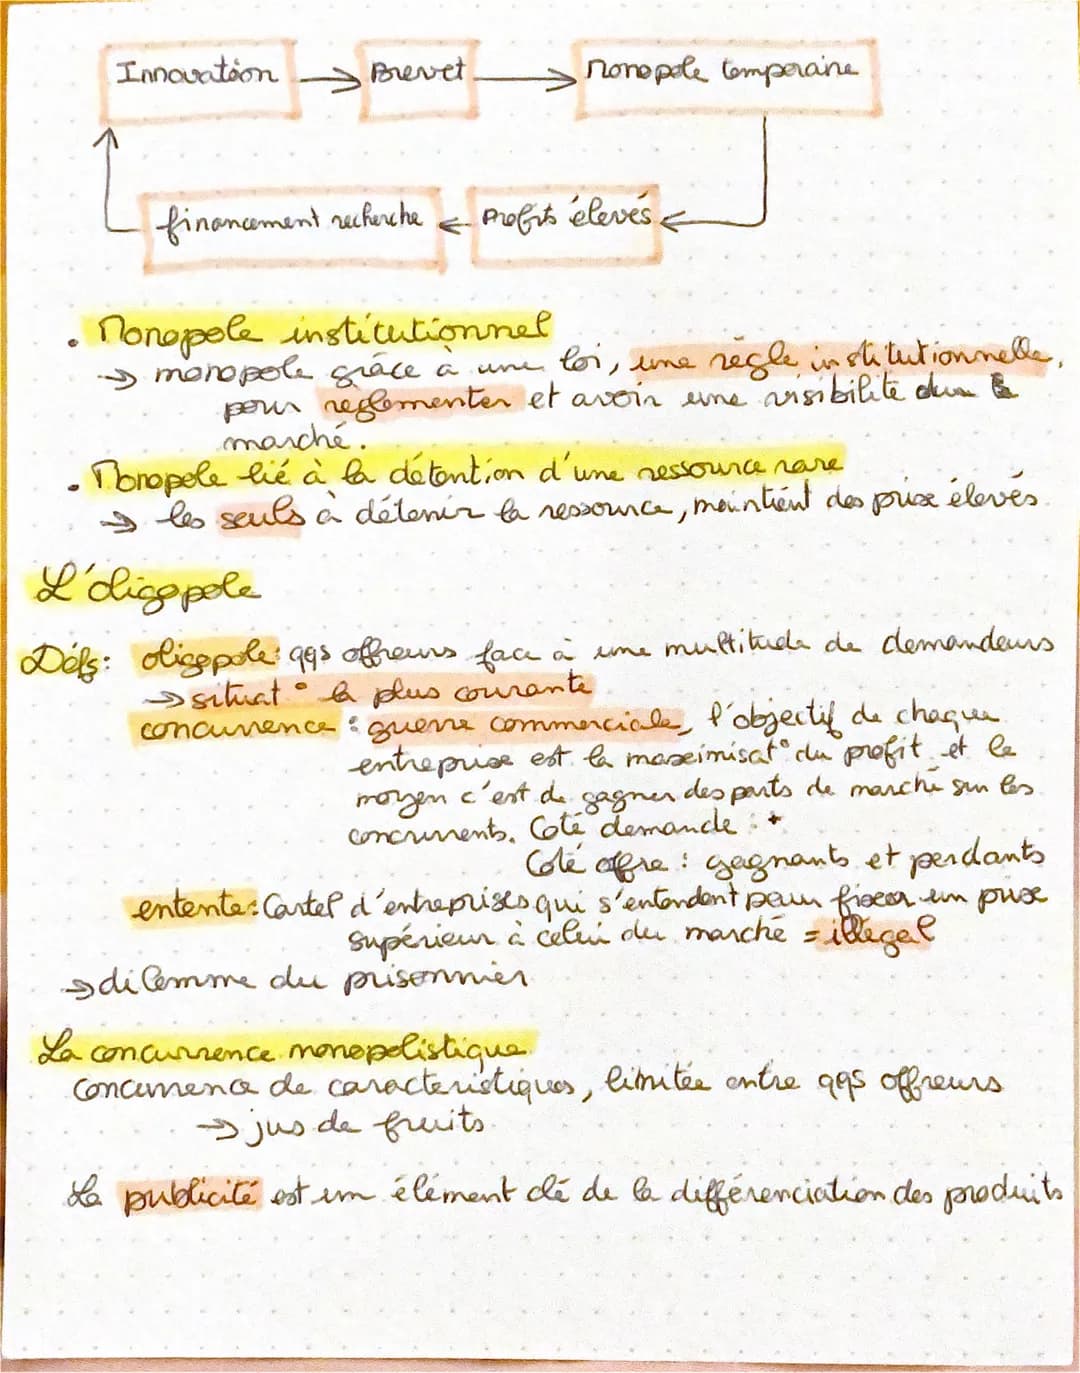 Innovation → Brevet → Monopole temporaire
financement recherche ← Profits élevés ←
• Monopole institutionnel
→ monopole grâce à une loi, une règle institutionnelle,
pour réglementer et avoir une visibilité du
marché.
• Monopole lié à la détention d'une ressource rare
→ les seuls à détenir la ressource, maintient des prix élevés
L'oligopole
Défs: oligopole: qqs offreurs face à une multitude de demandeurs
→ situat° la plus courante
concurrence : guerre commerciale, l'objectif de chaque
entreprise est la maximisat° du profit et le
moyen c'est de gagner des parts de marché sur les
concurrents. Coté demande : +
Coté offre : gagnants et perdants
entente: Cartel d'entreprises qui s'entendent pour fixer un prix
supérieur à celui du marché = illégal
→ dilemme du prisonnier
La concurrence monopolistique
Concurrence de caractéristiques, limitée entre qqs offreurs
→ jus de fruits
La publicité est un élément clé de la différenciation des produits